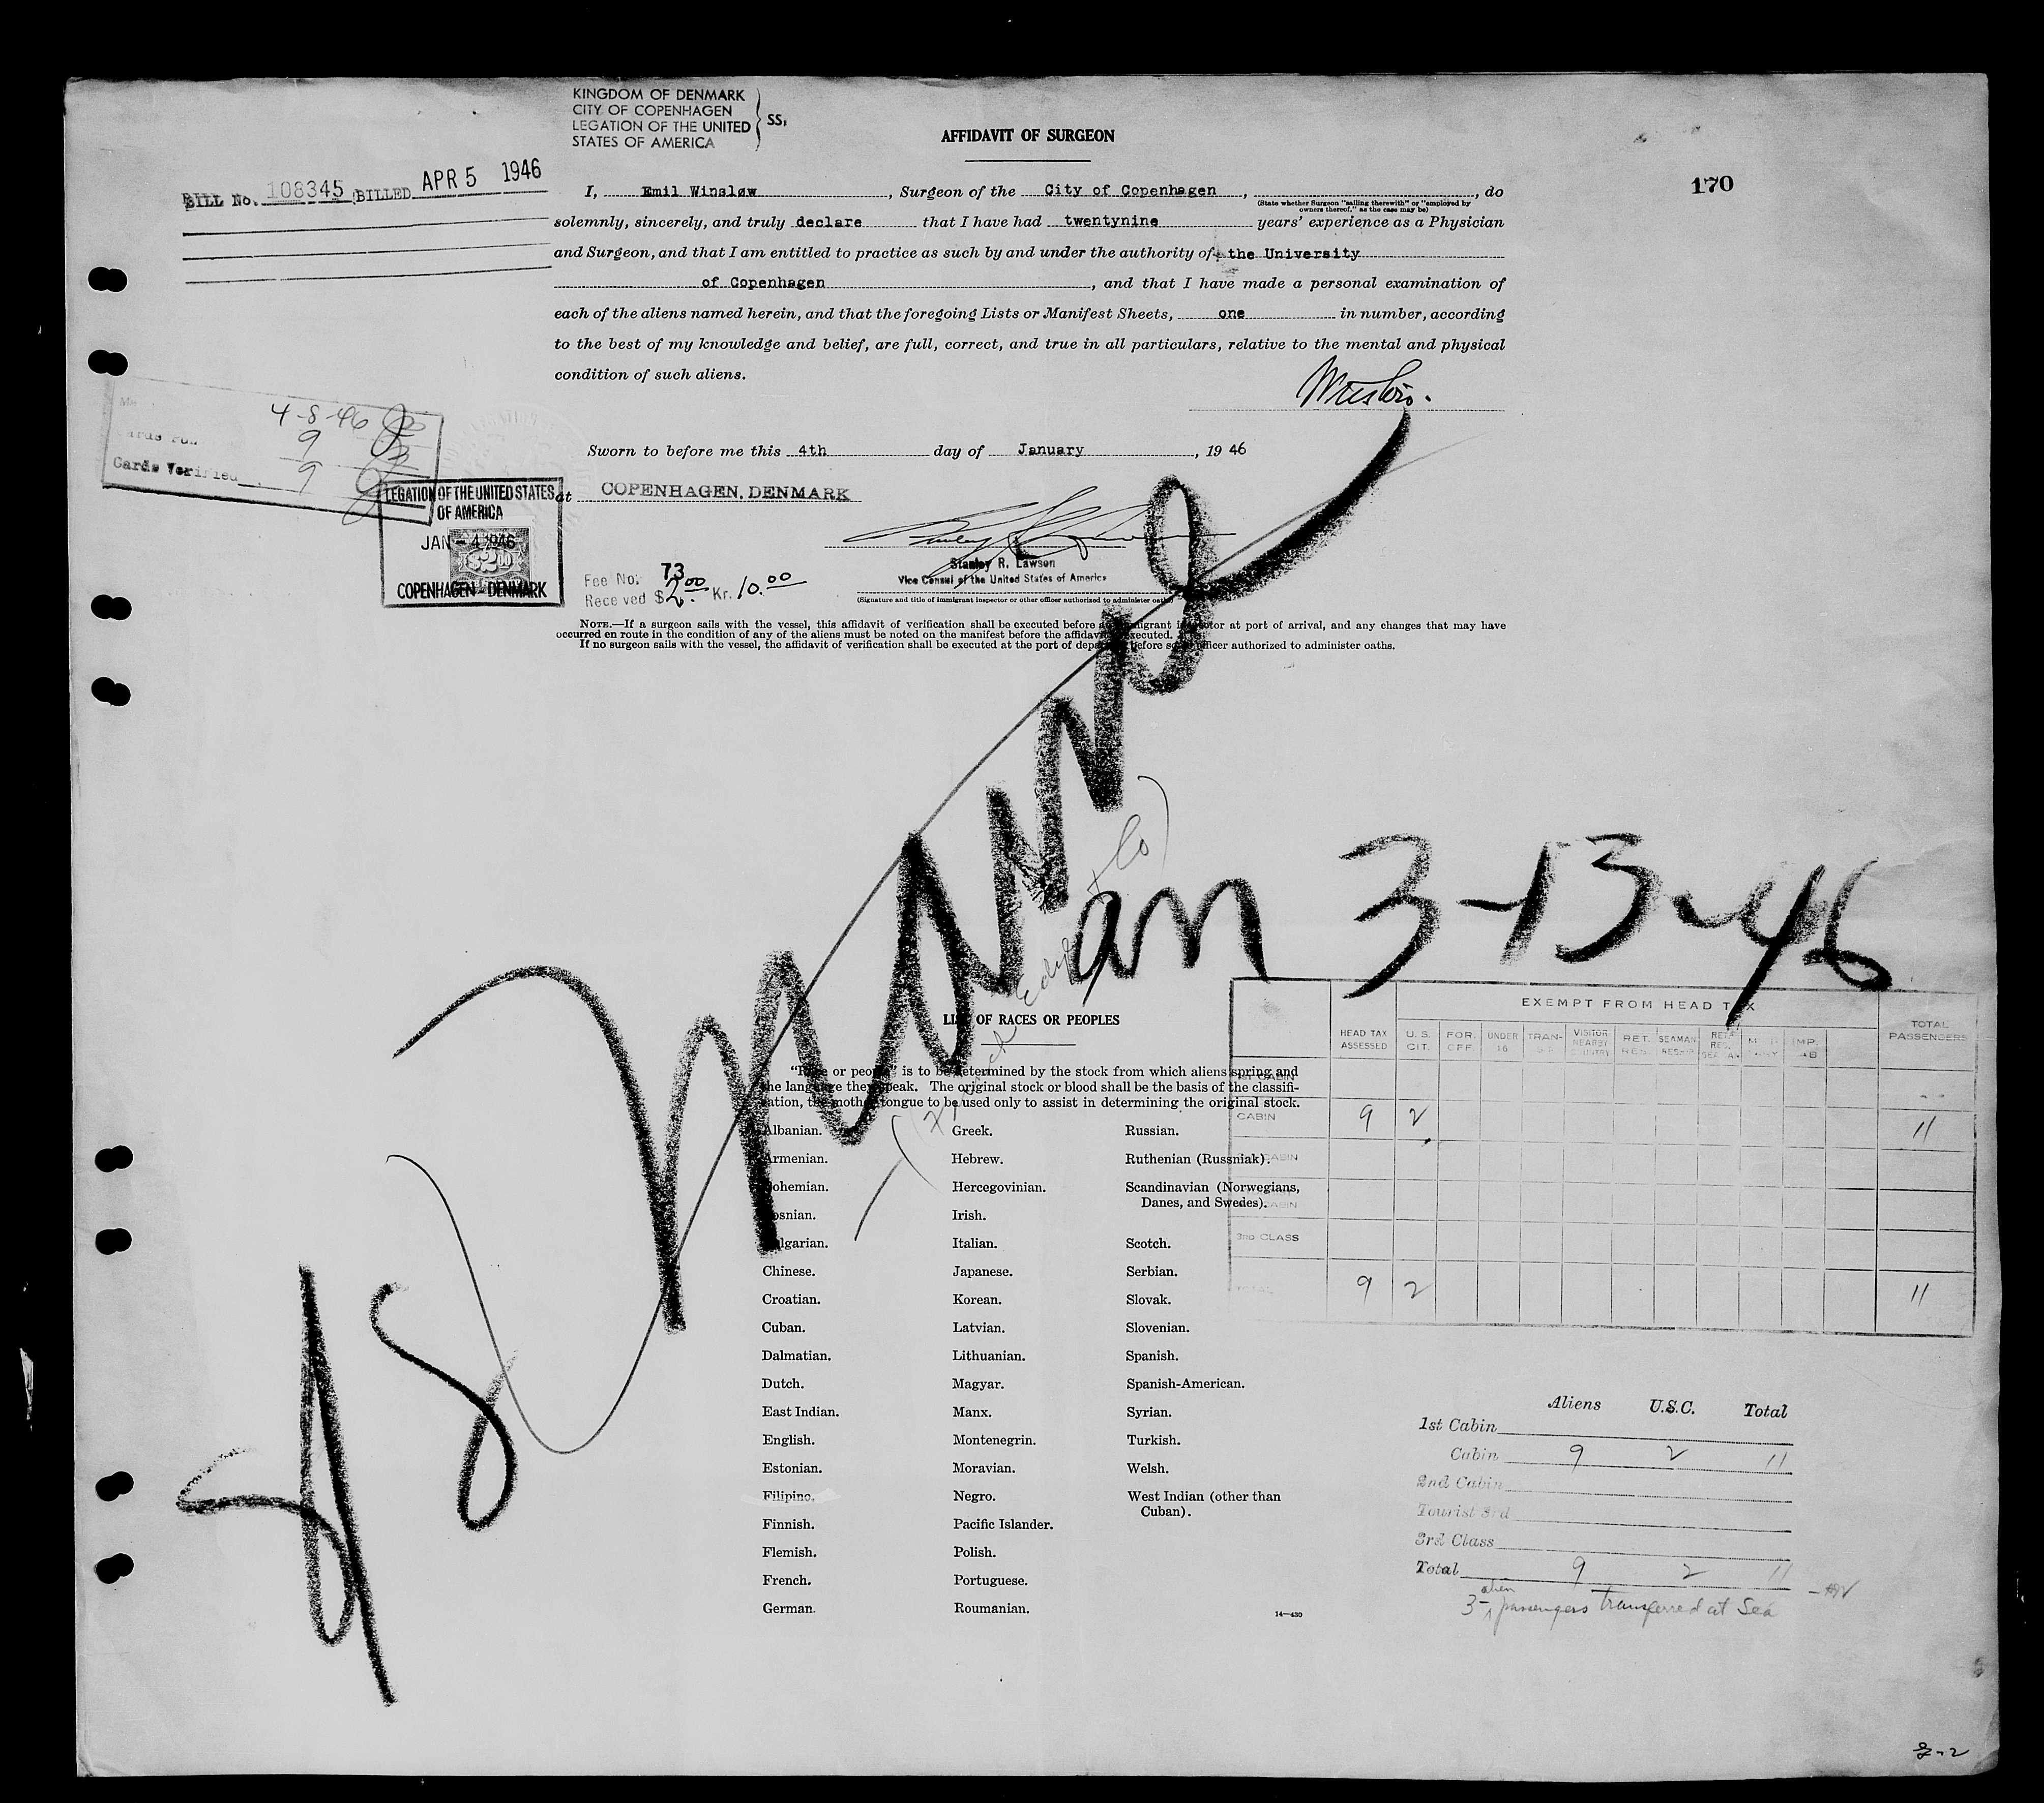 KINGDOM OF DENMARK
CITY OF COPENHAGEN
LEGATION OF THE UNITED
STATES OF AMERICA
SS,
AFFIDAVIT OF SURGEON
170
BILL No. 108345 BILLED APR 5 1946
I, Emil Winsløw, Surgeon of the City of Copenhagen, , do
(State whether Surgeon "sailing therewith" or "employed by
owners thereof," as the case may be)
solemnly, sincerely, and truly declare that I have had twentynine years' experience as a Physician
and Surgeon, and that I am entitled to practice as such by and under the authority of the University
of Copenhagen, and that I have made a personal examination of
each of the aliens named herein, and that the foregoing Lists or Manifest Sheets, one in number, according
to the best of my knowledge and belief, are full, correct, and true in all particulars, relative to the mental and physical
condition of such aliens.
4-8-46
9
Cards Verified 9
Sworn to before me this 4th day of January, 19 46
at COPENHAGEN, DENMARK
LEGATION OF THE UNITED STATES
OF AMERICA
JAN - 4 1946
$2.00
COPENHAGEN - DENMARK
Stanley R. Lawson
Vice Consul of the United States of America
Fee No. 73
Received $ 2.00 Kr. 10.00
(Signature and title of immigrant inspector or other officer authorized to administer oath)
NOTE.—If a surgeon sails with the vessel, this affidavit of verification shall be executed before an immigrant inspector at port of arrival, and any changes that may have
occurred en route in the condition of any of the aliens must be noted on the manifest before the affidavit is executed.
If no surgeon sails with the vessel, the affidavit of verification shall be executed at the port of departure before some officer authorized to administer oaths.
an 3-13-46
LIST OF RACES OR PEOPLES
"Race or people" is to be determined by the stock from which aliens spring and
the language they speak. The original stock or blood shall be the basis of the classifi-
cation, the mother tongue to be used only to assist in determining the original stock.
Albanian.
Armenian.
Bohemian.
Bosnian.
Bulgarian.
Chinese.
Croatian.
Cuban.
Dalmatian.
Dutch.
East Indian.
English.
Estonian.
Filipino.
Finnish.
Flemish.
French.
German.
Greek.
Hebrew.
Hercegovinian.
Irish.
Italian.
Japanese.
Korean.
Latvian.
Lithuanian.
Magyar.
Manx.
Montenegrin.
Moravian.
Negro.
Pacific Islander.
Polish.
Portuguese.
Roumanian.
Russian.
Ruthenian (Russniak).
Scandinavian (Norwegians,
Danes, and Swedes).
Scotch.
Serbian.
Slovak.
Slovenian.
Spanish.
Spanish-American.
Syrian.
Turkish.
Welsh.
West Indian (other than
Cuban).
14—430
EXEMPT FROM HEAD TAX
HEAD TAX ASSESSED U. S. CIT. FOR. OFF. UNDER 16 TRAN- VISITOR NEARBY COUNTRY RET. RES. SEAMAN IMP. TOTAL PASSENGERS
CABIN 9 2 11
CABIN
CABIN
3RD CLASS
TOTAL 9 2 11
Aliens U.S.C. Total
1st Cabin
Cabin 9 2 11
2nd Cabin
Tourist 3rd
3rd Class
Total 9 2 11
3- alien passengers transferred at Sea